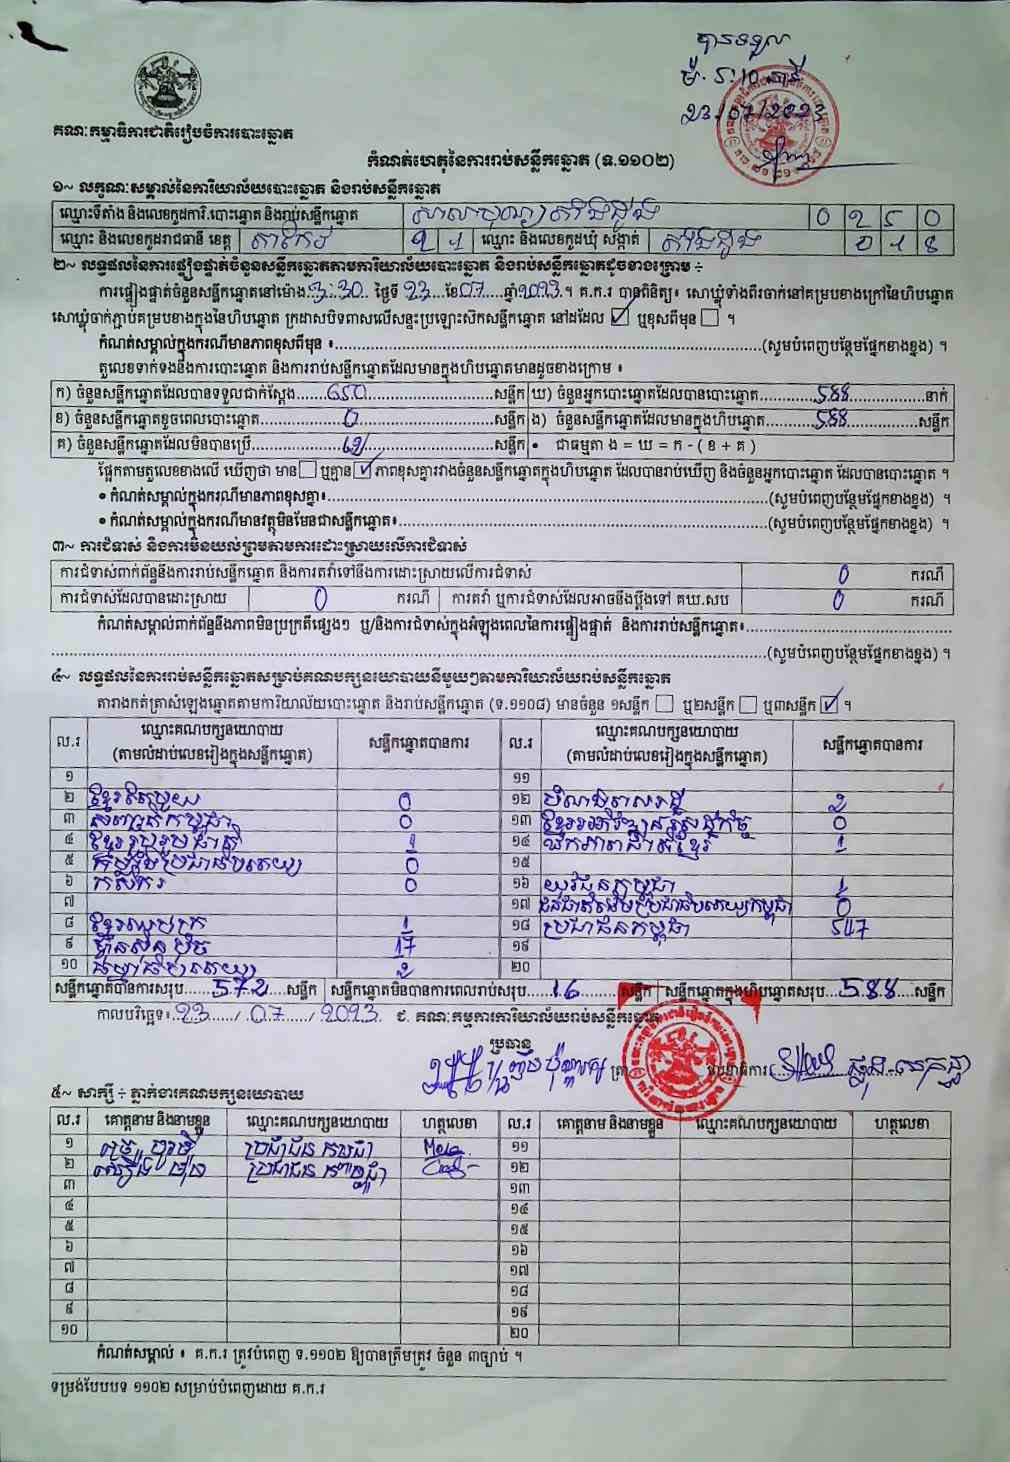 បានទទួល
ម៉. ៥:10 នាទី
23/07/2023
គណៈកម្មាធិការជាតិរៀបចំការបោះឆ្នោត
កំណត់ហេតុនៃការរាប់សន្លឹកឆ្នោត (ទ.១១០២)
១~ លក្ខណៈសម្គាល់នៃការិយាល័យបោះឆ្នោត និងរាប់សន្លឹកឆ្នោត
ឈ្មោះទីតាំង និងលេខកូដការិ.បោះឆ្នោត និងរាប់សន្លឹកឆ្នោត សាលាបុណ្យតាំងដូង 0 2 5 0
ឈ្មោះ និងលេខកូដរាជធានី ខេត្ត តាកែវ 2 1 ឈ្មោះ និងលេខកូដឃុំ សង្កាត់ តាំងដូង 0 1 8
២~ លទ្ធផលនៃការផ្ទៀងផ្ទាត់ចំនួនសន្លឹកឆ្នោតតាមការិយាល័យបោះឆ្នោត និងរាប់សន្លឹកឆ្នោតដូចខាងក្រោម ÷
ការផ្ទៀងផ្ទាត់ចំនួនសន្លឹកឆ្នោតនៅម៉ោង 3:30 ថ្ងៃទី 23 ខែ 07 ឆ្នាំ 2023 ។ គ.ក.រ បានពិនិត្យ៖ សោឃ្លុំទាំងពីរចាក់នៅគម្របខាងក្រៅនៃហិបឆ្នោត
សោឃ្លុំចាក់ភ្ជាប់គម្របខាងក្នុងនៃហិបឆ្នោត ក្រដាសបិទពាសលើសន្ទះប្រឡោះសិកសន្លឹកឆ្នោត នៅដដែល ☑ ឬខុសពីមុន ☐ ។
កំណត់សម្គាល់ក្នុងករណីមានភាពខុសពីមុន ៖ (សូមបំពេញបន្ថែមផ្នែកខាងខ្នង) ។
តួលេខទាក់ទងនឹងការបោះឆ្នោត និងការរាប់សន្លឹកឆ្នោតដែលមានក្នុងហិបឆ្នោតមានដូចខាងក្រោម ៖
ក) ចំនួនសន្លឹកឆ្នោតដែលបានទទួលជាក់ស្តែង 650 សន្លឹក ឃ) ចំនួនអ្នកបោះឆ្នោតដែលបានបោះឆ្នោត 588 នាក់
ខ) ចំនួនសន្លឹកឆ្នោតខូចពេលបោះឆ្នោត 0 សន្លឹក ង) ចំនួនសន្លឹកឆ្នោតដែលមានក្នុងហិបឆ្នោត 588 សន្លឹក
គ) ចំនួនសន្លឹកឆ្នោតដែលមិនបានប្រើ 62 សន្លឹក • ជាធម្មតា ង = ឃ = ក - ( ខ + គ )
ផ្អែកតាមតួលេខខាងលើ ឃើញថា មាន ☐ ឬគ្មាន ☑ ភាពខុសគ្នារវាងចំនួនសន្លឹកឆ្នោតក្នុងហិបឆ្នោត ដែលបានរាប់ឃើញ និងចំនួនអ្នកបោះឆ្នោត ដែលបានបោះឆ្នោត ។
• កំណត់សម្គាល់ក្នុងករណីមានភាពខុសគ្នា៖ (សូមបំពេញបន្ថែមផ្នែកខាងខ្នង) ។
• កំណត់សម្គាល់ក្នុងករណីមានវត្ថុមិនមែនជាសន្លឹកឆ្នោត៖ (សូមបំពេញបន្ថែមផ្នែកខាងខ្នង) ។
៣~ ការជំទាស់ និងការមិនយល់ព្រមតាមការដោះស្រាយលើការជំទាស់
ការជំទាស់ពាក់ព័ន្ធនឹងការរាប់សន្លឹកឆ្នោត និងការតវ៉ាទៅនឹងការដោះស្រាយលើការជំទាស់ 0 ករណី
ការជំទាស់ដែលបានដោះស្រាយ 0 ករណី ការតវ៉ា ឬការជំទាស់ដែលអាចនឹងប្តឹងទៅ គឃ.សប 0 ករណី
កំណត់សម្គាល់ពាក់ព័ន្ធនឹងភាពមិនប្រក្រតីផ្សេងៗ ឬ/និងការជំទាស់ក្នុងអំឡុងពេលនៃការផ្ទៀងផ្ទាត់ និងការរាប់សន្លឹកឆ្នោត៖
(សូមបំពេញបន្ថែមផ្នែកខាងខ្នង) ។
៤~ លទ្ធផលនៃការរាប់សន្លឹកឆ្នោតសម្រាប់គណបក្សនយោបាយនីមួយៗតាមការិយាល័យរាប់សន្លឹកឆ្នោត
តារាងកត់ត្រាសំឡេងឆ្នោតតាមការិយាល័យបោះឆ្នោត និងរាប់សន្លឹកឆ្នោត (ទ.១១០៨) មានចំនួន ១សន្លឹក ☐ ឬ២សន្លឹក ☐ ឬ៣សន្លឹក ☑ ។
ល.រ ឈ្មោះគណបក្សនយោបាយ (តាមលំដាប់លេខរៀងក្នុងសន្លឹកឆ្នោត) សន្លឹកឆ្នោតបានការ ល.រ ឈ្មោះគណបក្សនយោបាយ (តាមលំដាប់លេខរៀងក្នុងសន្លឹកឆ្នោត) សន្លឹកឆ្នោតបានការ
១ ១១
២ ខ្មែរតែមួយ 0 ១២ បំណងពលរដ្ឋ 2
៣ សំបុកឃ្មុំកម្ពុជា 0 ១៣ 0
៤ ខ្មែររួបរួមជាតិ 1 ១៤ ឯកភាពជាតិខ្មែរ 1
៥ កម្លាំងប្រជាធិបតេយ្យ 0 ១៥
៦ កសិករ 0 ១៦ យុវជនកម្ពុជា 1
៧ ១៧ ជនជាតិដើមប្រជាធិបតេយ្យកម្ពុជា 0
៨ ខ្មែរឈប់ក្រ 1 ១៨ ប្រជាជនកម្ពុជា 547
៩ ហ៊្វុនស៊ិនប៉ិច 17 ១៩
១០ ធម្មាធិបតេយ្យ 2 ២០
សន្លឹកឆ្នោតបានការសរុប 572 សន្លឹក សន្លឹកឆ្នោតមិនបានការពេលរាប់សរុប 16 សន្លឹក សន្លឹកឆ្នោតក្នុងហិបឆ្នោតសរុប 588 សន្លឹក
កាលបរិច្ឆេទ៖ 23 / 07 / 2023 ជ. គណៈកម្មការការិយាល័យរាប់សន្លឹកឆ្នោត
ប្រធាន
ត្រា លេខាធិការ
៥~ សាក្សី ÷ ភ្នាក់ងារគណបក្សនយោបាយ
ល.រ គោត្តនាម និងនាមខ្លួន ឈ្មោះគណបក្សនយោបាយ ហត្ថលេខា ល.រ គោត្តនាម និងនាមខ្លួន ឈ្មោះគណបក្សនយោបាយ ហត្ថលេខា
១ ប្រជាជនកម្ពុជា ១១
២ ប្រជាជនកម្ពុជា ១២
៣ ១៣
៤ ១៤
៥ ១៥
៦ ១៦
៧ ១៧
៨ ១៨
៩ ១៩
១០ ២០
កំណត់សម្គាល់ ៖ គ.ក.រ ត្រូវបំពេញ ទ.១១០២ ឱ្យបានត្រឹមត្រូវ ចំនួន ៣ច្បាប់ ។
ទម្រង់បែបបទ ១១០២ សម្រាប់បំពេញដោយ គ.ក.រ